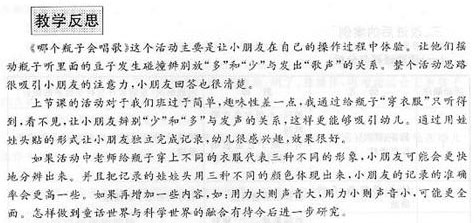 教学反思
《哪个瓶子会唱歌》这个活动主要是让小朋友在自己的操作过程中体验。让他们摇
动瓶子听里面的豆子发生碰撞辨别放“多”和“少”与发出“歌声”的关系。整个活动思路
很吸引小朋友的注意力,小朋友回答也很清楚。
上节课的活动对于我们班过于简单,趣味性差一点,我通过给瓶子“穿衣服”只听得
到,看不见,让小朋友辨别“少”和“多”与发声的关系,这样更能够吸引幼儿。通过用娃
娃头贴的形式让小朋友独立完成记录,幼儿很感兴趣,效果很好。
如果活动中老师给瓶子穿上不同的衣服代表三种不同的形象,小朋友可能会更快
地分辨出来。并且把记录的娃娃头用三种不同的颜色体现出来,小朋友的记录的准确
率会更高一些。如果再增加一些内容,如:用力大则声音大,用力小则声音小,可能更全
面。怎样做到童话世界与科学世界的融合有待今后进一步研究。